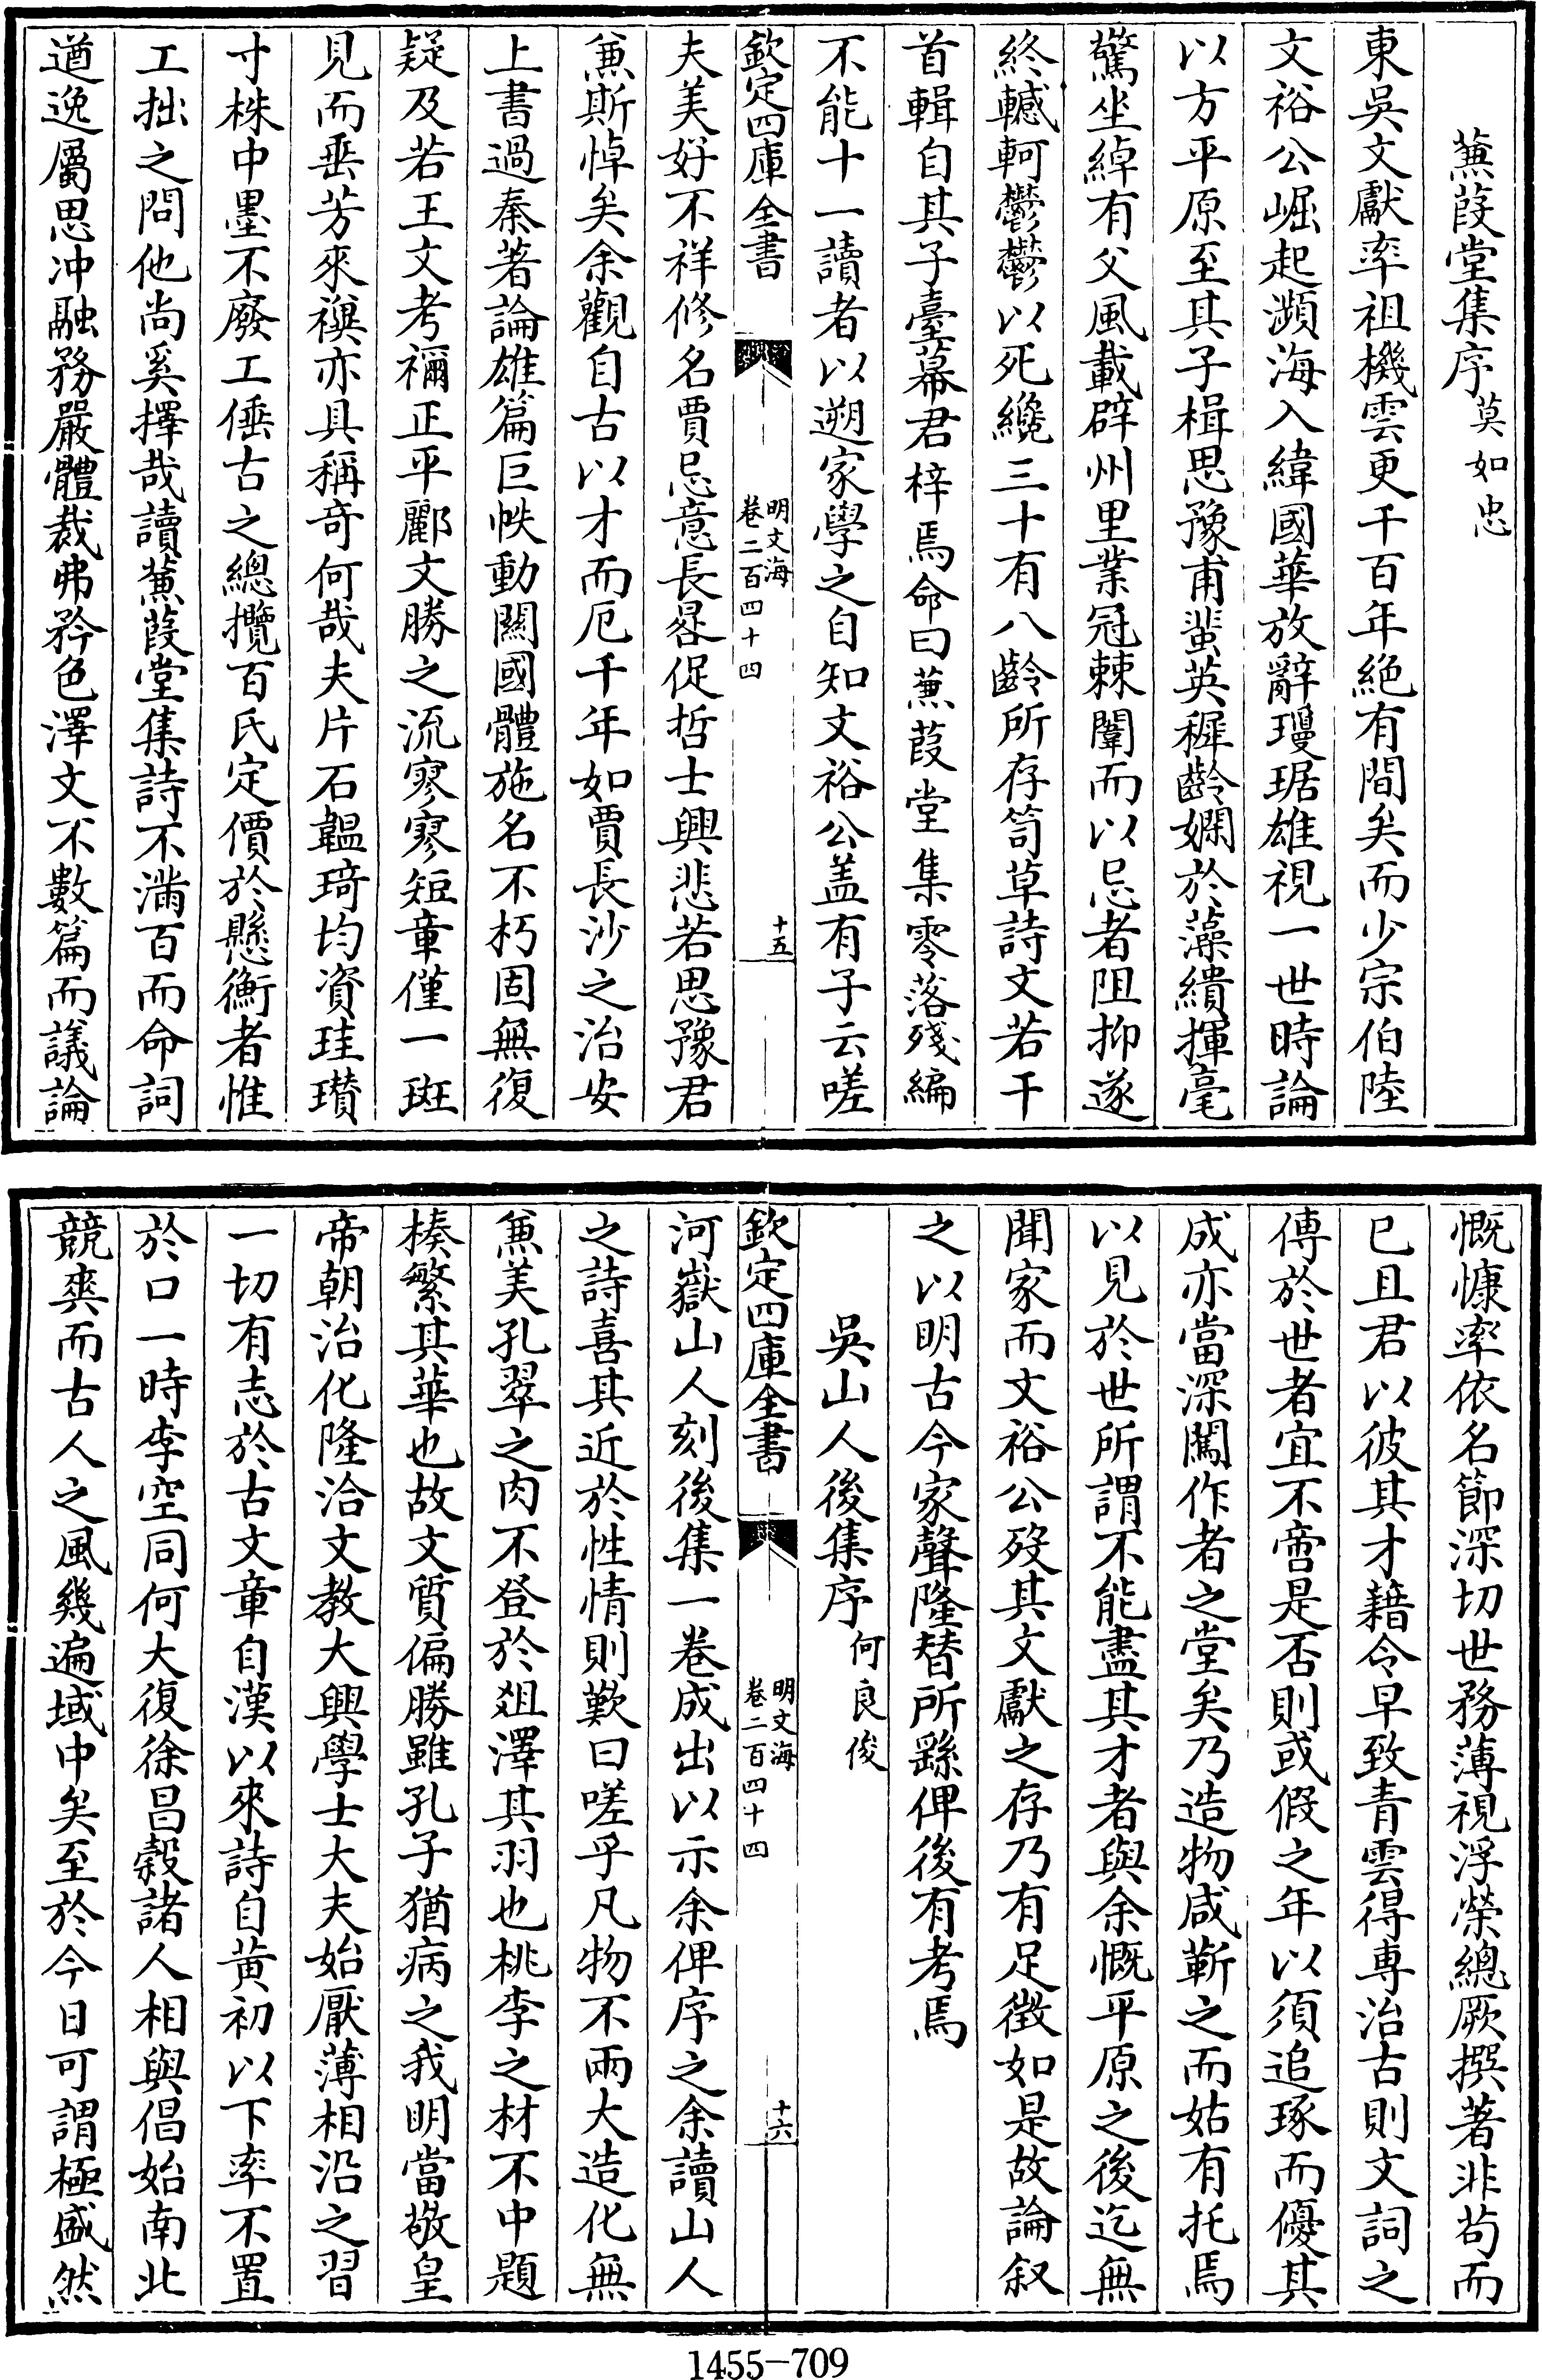 蒹葭堂集序莫如忠
東吳文獻率祖機雲更千百年絶有間矣而少宗伯陸
文裕公崛起瀕海入緯國華放辭瓊琚雄視一世時論
以方平原至其子楫思豫甫蜚英穉齡嫻於藻繢揮毫
驚坐綽有父風載辟州里業冠棘闈而以忌者阻抑遂
終轗軻鬱鬱以死纔三十有八齡所存笥草詩文若干
首輯自其子臺幕君梓焉命曰蒹葭堂集零落殘編
不能十一讀者以遡家學之自知文裕公盖有子云嗟
欽定四庫全書
明文海
卷二百四十四
十五
夫美好不祥修名賈忌意長晷促哲士興悲若思豫君
兼斯悼矣余觀自古以才而厄千年如賈長沙之治安
上書過秦著論雄篇巨帙動關國體施名不朽固無復
疑及若王文考禰正平酈文勝之流寥寥短章僅一斑
見而垂芳來禩亦具稱奇何哉夫片石韞琦均資珪瓚
寸株中墨不廢工倕古之總攬百氏定價於懸衡者惟
工拙之問他尚奚擇哉讀蒹葭堂集詩不滿百而命詞
遒逸屬思冲融務嚴體裁弗矜色澤文不數篇而議論
慨慷率依名節深切世務薄視浮榮總厥撰著非苟而
已且君以彼其才藉令早致青雲得専治古則文詞之
傳於世者宜不啻是否則或假之年以須追琢而優其
成亦當深闖作者之堂矣乃造物咸靳之而姑有托焉
以見於世所謂不能盡其才者與余慨平原之後迄無
聞家而文裕公歿其文獻之存乃有足徴如是故論叙
之以明古今家聲隆替所繇俾後有考焉
吳山人後集序何良俊
欽定四庫全書
明文海
卷二百四十四
十六
河嶽山人刻後集一巻成出以示余俾序之余讀山人
之詩喜其近於性情則歎曰嗟乎凡物不兩大造化無
兼美孔翠之肉不登於俎澤其羽也桃李之材不中題
榛繁其華也故文質偏勝雖孔子猶病之我明當敬皇
帝朝治化隆洽文教大興學士大夫始厭薄相沿之習
一切有志於古文章自漢以來詩自黄初以下率不置
於口一時李空同何大復徐昌榖諸人相與倡始南北
競爽而古人之風幾遍域中矣至於今日可謂極盛然
1455-709